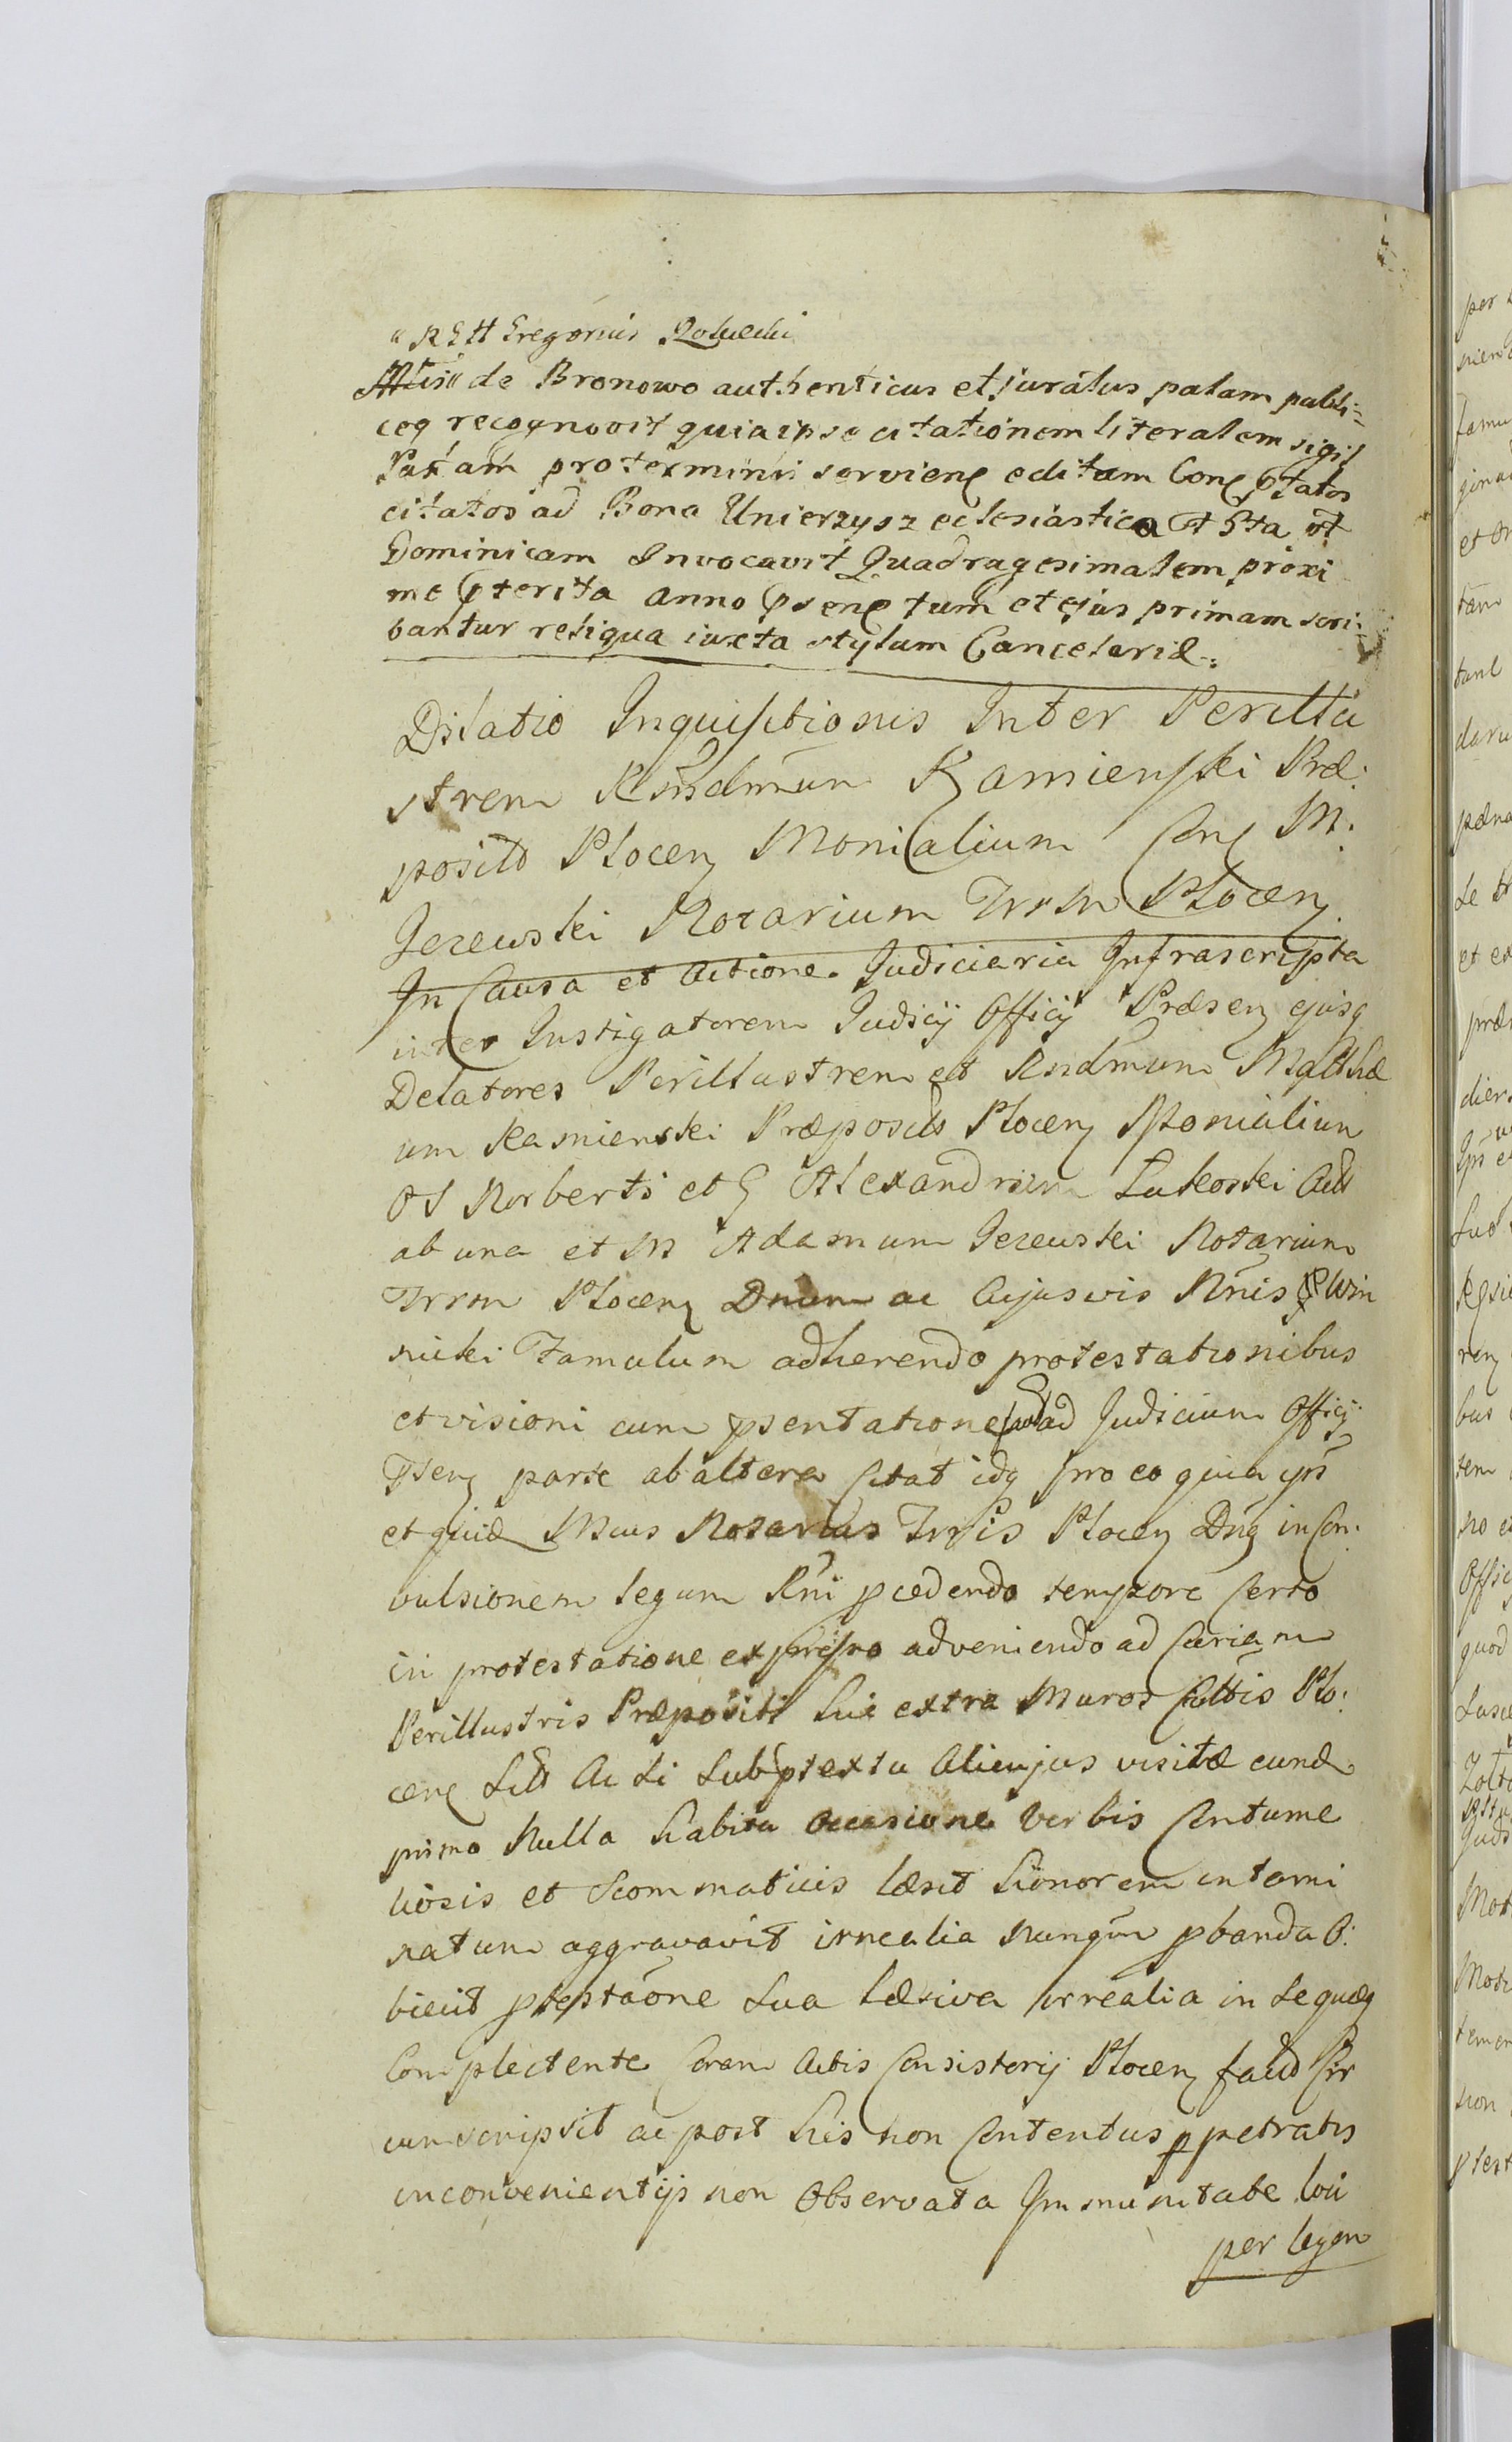 "R G H Gregorius
de Bronowo authenticus et juratus palam publi=
ceq recognovit quia ipse citationem literalem sigil
latam pro terminis servienę editam Conę Ptatos
citatos ad Bona Unierzysz eclesiastica
Dominicam Invocavit Quadragesimalem proxi
me Pterita anno Psenę tum et ejus primam scri:
bantur reliqua iuxta stylum Cancelariæ.
Dilatio Inquisitionis Inter Perillu
strem Rndmum Kamienski Præ:
positū Plocenę Monialium Conę M.
Jezewski Notarium Trrm Plocenę
In Causa et Actione Judiciaria Infrascripta
inter Instigatorem Judicij Officij Præsenę ejusq
Delatores Perillustrem et Rndmum Matthæ
um Kamienski Præpositū Plocenę Monialium
OS Norberti et G Alexandrum Lutkoski Act
ab una et M Adamum Jezewski Notarium
Trrm Plocenę Dnum ac Cujusvis Rnis
nicki Famulum adherendo protestationibus
et visioni cum psentatione ad Judicium Officij
Psenę parte ab altera Citat idq pro eo quia ipsi
et quidę Mcus Notarius Trris Plocenę Dnę in Con:
vulsionem legum Rni pcedendo tempore Certo
in protestatione expresso adveniendo ad Curiam
Perillustris Præpositi Sui extra Muros Cittis Plo:
cenę Sitā Ac si Sub ptextu Alicujus visitæ eundę
primo Nulla habita occasione Verbis Contume
liosis et Scommaticis læsit honorem intami
natum aggravavit irrealia nunqm pbanda O:
biecit ptestaone Sua læsiva irrealia in se quæq
Complectente Coram Actis Consistorij Plocenę Cir
cumscripsit ac post his non Contentus ppetratis
inconvenientijs non Observata Immunitate loci
per legem